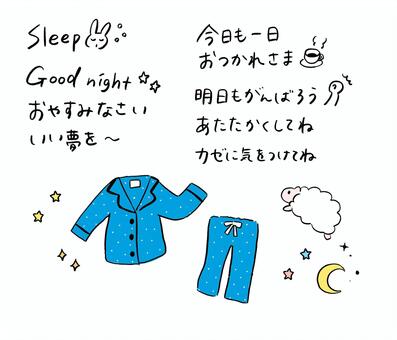 Sleep
Good night
おやすみなさい
いい夢を～
今日も一日
おつかれさま
明日もがんばろう
あたたかくしてね
カゼに気をつけてね